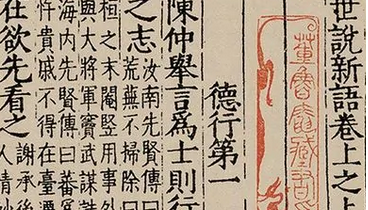 世說新語卷上之上
德行第一
陳仲舉言爲士則行
之志
汝南先賢傳曰
荒蕪不掃除曰
桓之末閹豎用事外
興大將軍竇武謀誅
海內先賢傳曰蕃爲
忤貴戚不得在臺遷
在欲先看之
謝承後
人清妙